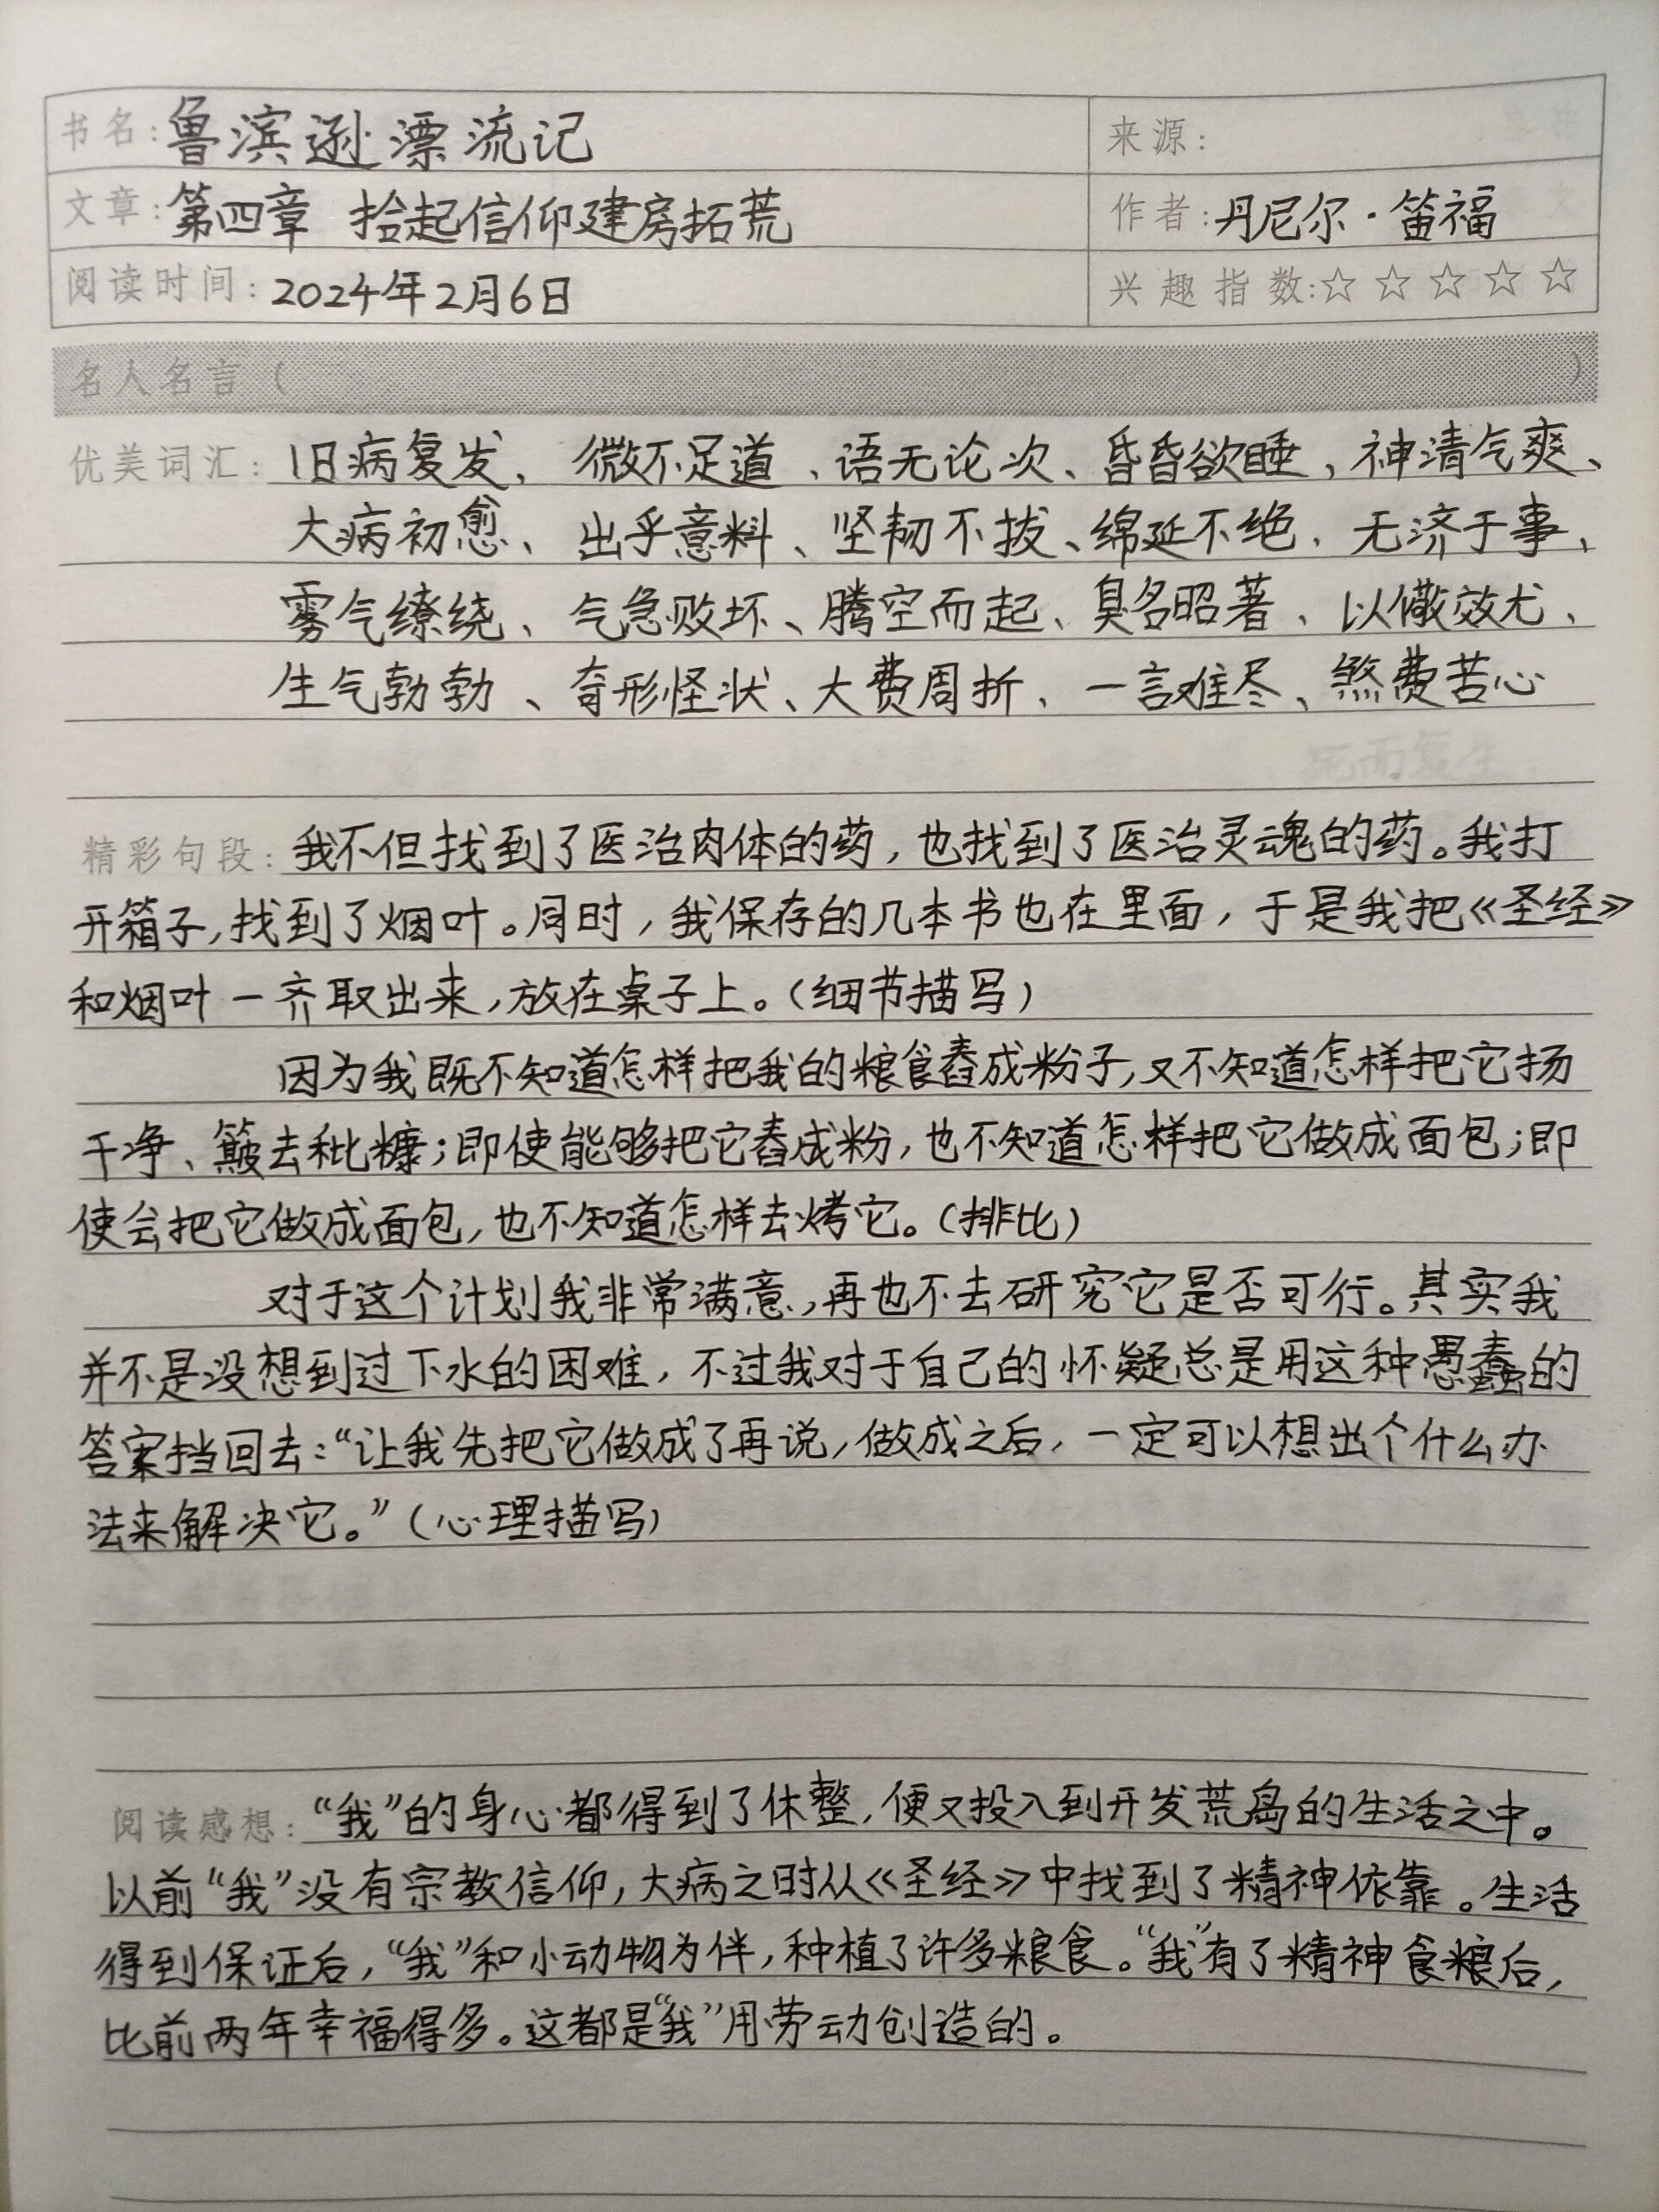 书名:鲁滨逊漂流记 来源:
文章:第四章 拾起信仰建房拓荒 作者:丹尼尔·笛福
阅读时间:2024年2月6日 兴趣指数:☆☆☆☆☆
名人名言( )
优美词汇:旧病复发、微不足道、语无论次、昏昏欲睡、神清气爽、
大病初愈、出乎意料、坚韧不拔、绵延不绝、无济于事、
雾气缭绕、气急败坏、腾空而起、臭名昭著、以儆效尤、
生气勃勃、奇形怪状、大费周折、一言难尽、煞费苦心
死而复生
精彩句段:我不但找到了医治肉体的药,也找到了医治灵魂的药。我打
开箱子,找到了烟叶。同时,我保存的几本书也在里面,于是我把《圣经》
和烟叶一齐取出来,放在桌子上。(细节描写)
因为我既不知道怎样把我的粮食舂成粉子,又不知道怎样把它扬
干净、簸去秕糠;即使能够把它舂成粉,也不知道怎样把它做成面包;即
使会把它做成面包,也不知道怎样去烤它。(排比)
对于这个计划我非常满意,再也不去研究它是否可行。其实我
并不是没想到过下水的困难,不过我对于自己的怀疑总是用这种愚蠢的
答案挡回去:“让我先把它做成了再说,做成之后,一定可以想出个什么办
法来解决它。”(心理描写)
阅读感想:“我”的身心都得到了休整,便又投入到开发荒岛的生活之中。
以前“我”没有宗教信仰,大病之时从《圣经》中找到了精神依靠。生活
得到保证后,“我”和小动物为伴,种植了许多粮食。“我”有了精神食粮后,
比前两年幸福得多。这都是“我”用劳动创造的。